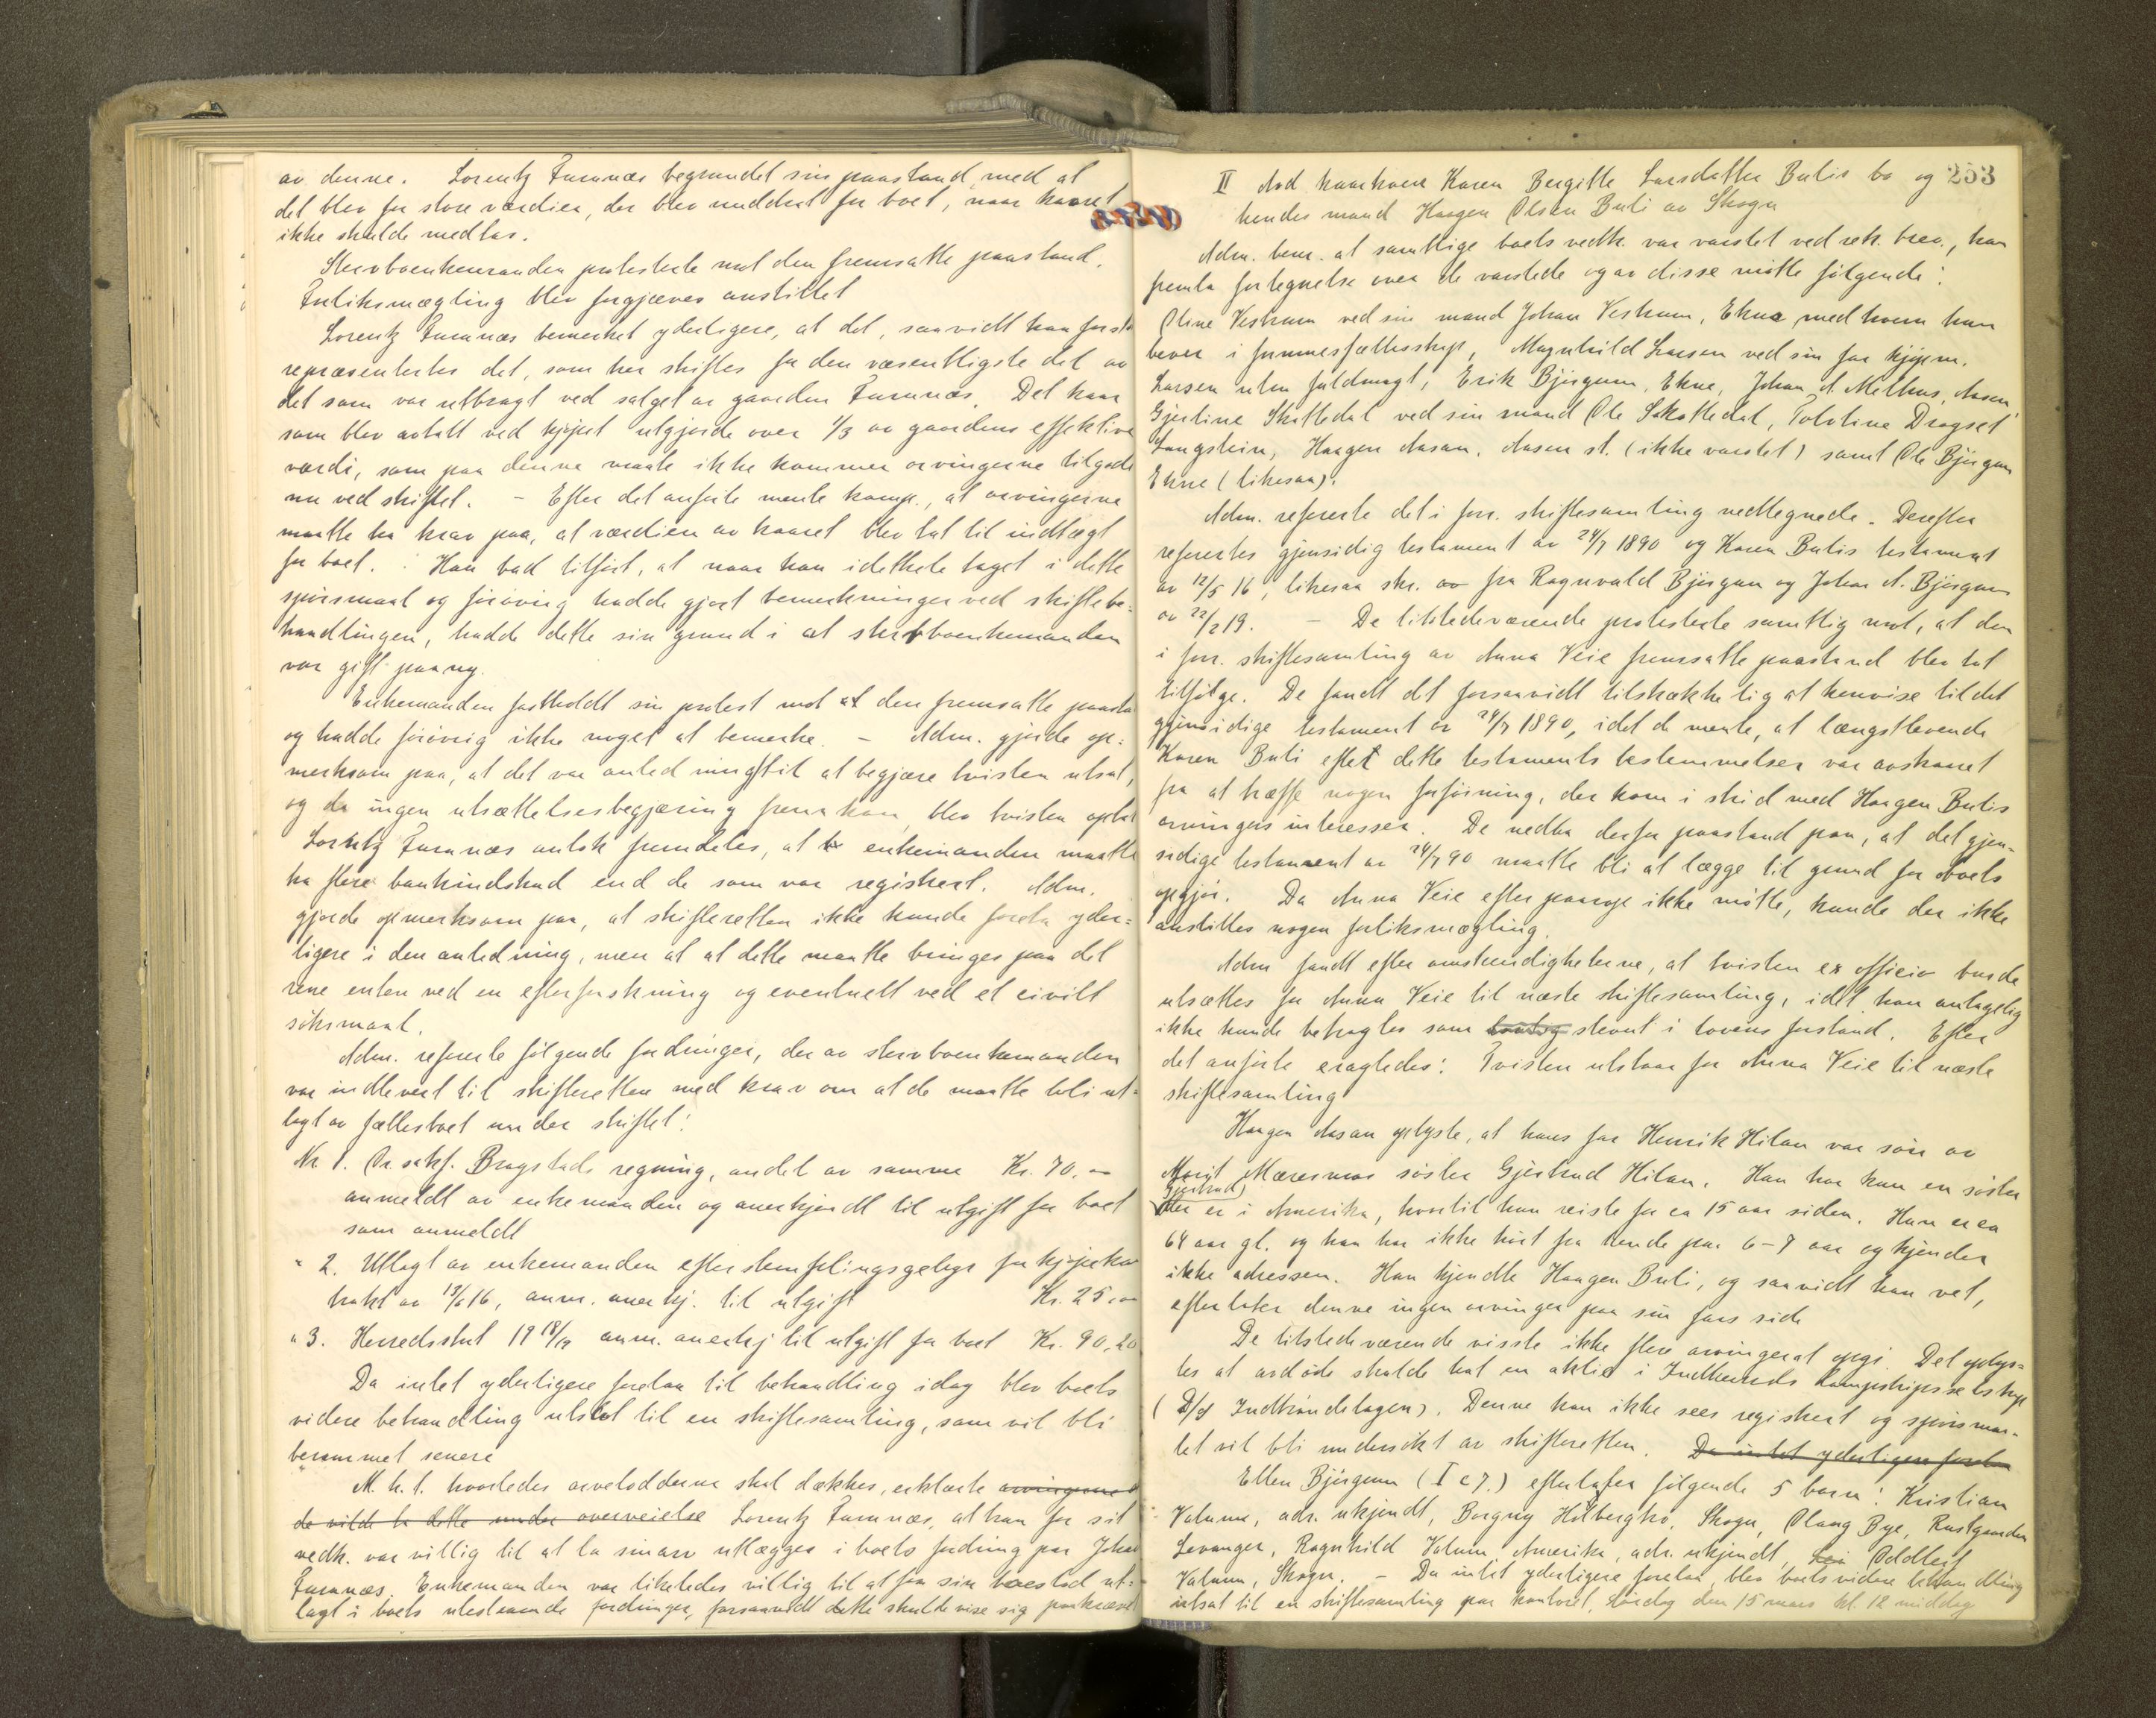 av denne. Lorentz Furunæs begrundet sin paastand med at
det blev for store værdier, der blev unddrat for boet, naar kaaret
ikke skulde medtas.
Stervboenkemanden protesterte mot den fremsatte paastand.
Forliksmægling blev forgjæves anstillet
Lorentz Furunæs bemerket yderligere, at det, saavidt han forsto
repræsentertes det, som her skiftes for den væsentligste del av
det som var utbragt ved salget av gaarden Furunæs. Det kaar
som blev avtalt ved kjøpet utgjorde over 1/3 av gaardens effektive
værdi, som paa denne maate ikke kommer arvingerne tilgode
nu ved skiftet. - Efter det anførte mente komp., at arvingerne
maatte ha krav paa, at værdien av kaaret blev tat til indtægt
for boet. Han bad tilført, at naar han idethele taget i dette
spörsmaal og forøvrig hadde gjort bemerkninger ved skiftebe-
handlingen, hadde dette sin grund i at stervboenkemanden
var gift paany.
Enkemanden fastholdt sin protest mot at den fremsatte paasta
og hadde forövrig ikke noget at bemerke. - Adm. gjorde op-
merksom paa, at det var anledning til at begjære tvisten utsat,
og da ingen utsættelsesbegjæring fremkom, blev tvisten optat
Lorentz Furunæs antok fremdeles, at enkemanden maatte
ha flere bankindskud end de som var registrert. Adm.
gjorde opmerksom paa, at skifteretten ikke kunde foreta yder-
ligere i den anledning, men at at dette maatte bringes paa det
rene enten ved en efterforskning og eventuelt ved et civilt
söksmaal.
Adm. refererte følgende fordringer, der av stervboenkemanden
var indlevert til skifteretten med krav om at de maatte bli ut-
lagt av fællesboet under skiftet:
Nr 1. Or.sakf. Bragstads regning, andel av samme Kr. 70.00
anmeldt av enkemanden og anerkjendt til utgift for boet
som anmeldt
" 2. Utlagt av enkemanden efterstemplingsgebyr for kjøpekon
trakt av 13/6 16, anm. anerkj. til utgift Kr. 25.00
" 3. Herredsskat 19 18/19 anm. anerkj til utgift for boet Kr. 90,20
Da intet yderligere forelaa til behandling idag blev boets
videre behandling utsat til en skiftesamling, som vil bli
berammet senere
M. h. t. hvorledes arvelodderne skal dækkes, erklærte arvingerne
de vilde ta dette under overveielse Lorentz Furunæs, at han for sit
vedk. var villig til at ta sin arv utlægges i boets fordring paa Johan
Furunæs. Enkemanden var likeledes villig til at faa sin boeslod ut-
lagt i boets utestaaende fordringer, forsaavidt dette skulde vise sig paakrævet
253
II Avd kaarkone Karen Bergitte Larsdatter Bulis bo og
hendes mand Haagen Olsen Buli av Skogn
Adm. bem. at samtlige boets vedk. var varslet ved rek. brev, han
fremla fortegnelse over de varslede og av disse mötte fölgende:
Oline Vestrum ved sin mand Johan Vestrum, Ekne med hvem hun
lever i formuesfællesskap, Magnhild Larsen ved sin far kjøpm.
Larsen uten fuldmagt, Erik Björgum, Ekne, Johan A. Melhus, Aasen
Gjertine Skottedal ved sin mand Ole Skottedal, Tolotine Dragset
Langstein, Haagen Aasan, Aasen st. (ikke varslet) samt Ole Björgum
Ekne (likesaa).
Adm. refererte det i forr. skiftesamling vedtegnede. Derefter
refertes gjensidig testament av 24/7 1890 og Karen Bulis testament
av 12/5 16, likesaa skr. av fra Ragnvald Björgum og Johan A. Björgum
av 22/2 19. - De tilstedeværende protesterte samtlig mot, at den
i forr. skiftesamling av Anna Veie fremsatte paastand blev tat
tilfølge. De fandt det forsaavidt tilstrækkelig at henvise til det
gjensidige testament av 24/7 1890, idet de mente, at længstlevende
Karen Buli efter dette testaments bestemmelser var avskaaret
fra at træffe nogen forföining, der kom i strid med Haagen Bulis
arvingers interesser. De nedla derfor paastand paa, at det gjen-
sidige testament av 24/7 90 maatte bli at lægge til grund for boets
opgjör. Da Anna Veie efter paarop ikke mötte, kunde der ikke
anstilles nogen forliksmægling.
Adm fandt efter omstændigheterne, at tvisten ex officio burde
utsættes for Anna Veie til næste skiftesamling, idet hun antagelig
ikke kunde betragtes som stevnt i lovens forstand. Efter
det anførte eragtedes: Tvisten utstaar for Anna Veie til næste
skiftesamling
Haagen Aasan oplyste, at hans far Henrik Hilan var sön av
Marit Mæresmos söster Gjertrud Hilan. Han har kun en söster
Gjertrud)
der er i Amerika, hvortil hun reiste for ca 15 aar siden. Hun er ca
64 aar gl. og han har ikke hört fra hende paa 6-7 aar og kjender
ikke adressen. Han kjendte Haagen Buli, og saavidt han vet,
efterlater denne ingen arvinger paa sin fars side
De tilstedeværende visste ikke flere arvinger at opgi. Det oplys-
tes at avdöde skulde hat en aktie i Indherreds dampskipsselskap
(D/S Indtröndelagen). Denne kan ikke sees registrert og spörsmaa-
let vil bli undersökt av skifteretten. Da intet yderligere forelaa
Ellen Björgum (I c 7.) efterlater følgende 5 barn: Kristian
Valum, adr. ukjendt, Borgny Holbergmo, Skogn, Olaug Bye, Rustgaarden
Levanger, Ragnhild Valum Amerika, adr. ukjendt, Oddleif
Valum, Skogn. - Da intet yderligere forelaa, blev boets videre behandling
utsat til en skiftesamling paa kontoret, Lördag den 15 mars kl. 12 middag